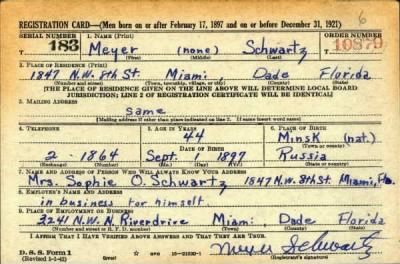 REGISTRATION CARD—(Men born on or after February 17, 1897 and on or before December 31, 1921)
6
SERIAL NUMBER 1. NAME (Print) ORDER NUMBER
183 Meyer (none) Schwartz 10879
(First) (Middle) (Last)
2. PLACE OF RESIDENCE (Print)
1847 N.W. 8th St. Miami Dade Florida
(Number and street) (Town, township, village, or city) (County) (State)
[THE PLACE OF RESIDENCE GIVEN ON THE LINE ABOVE WILL DETERMINE LOCAL BOARD
JURISDICTION; LINE 2 OF REGISTRATION CERTIFICATE WILL BE IDENTICAL]
3. MAILING ADDRESS
Same
(Mailing address if other than place indicated on line 2. If same insert word same)
4. TELEPHONE 5. AGE IN YEARS 6. PLACE OF BIRTH
44 Minsk (nat.)
DATE OF BIRTH (Town or county)
2-1864 Sept. 1897 Russia
(Exchange) (Number) (Mo.) (Day) (Yr.) (State or country)
7. NAME AND ADDRESS OF PERSON WHO WILL ALWAYS KNOW YOUR ADDRESS
Mrs. Sophie O. Schwartz 1847 N.W. 8th St. Miami, Fla.
8. EMPLOYER'S NAME AND ADDRESS
in business for himself
9. PLACE OF EMPLOYMENT OR BUSINESS
2241 N.W. N. Riverdrive Miami, Dade Florida
(Number and street or R. F. D. number) (Town) (County) (State)
I AFFIRM THAT I HAVE VERIFIED ABOVE ANSWERS AND THAT THEY ARE TRUE.
D. S. S. Form 1
(Revised 1-1-42) GPO 16-21630-1 Meyer Schwartz
(Registrant's signature)